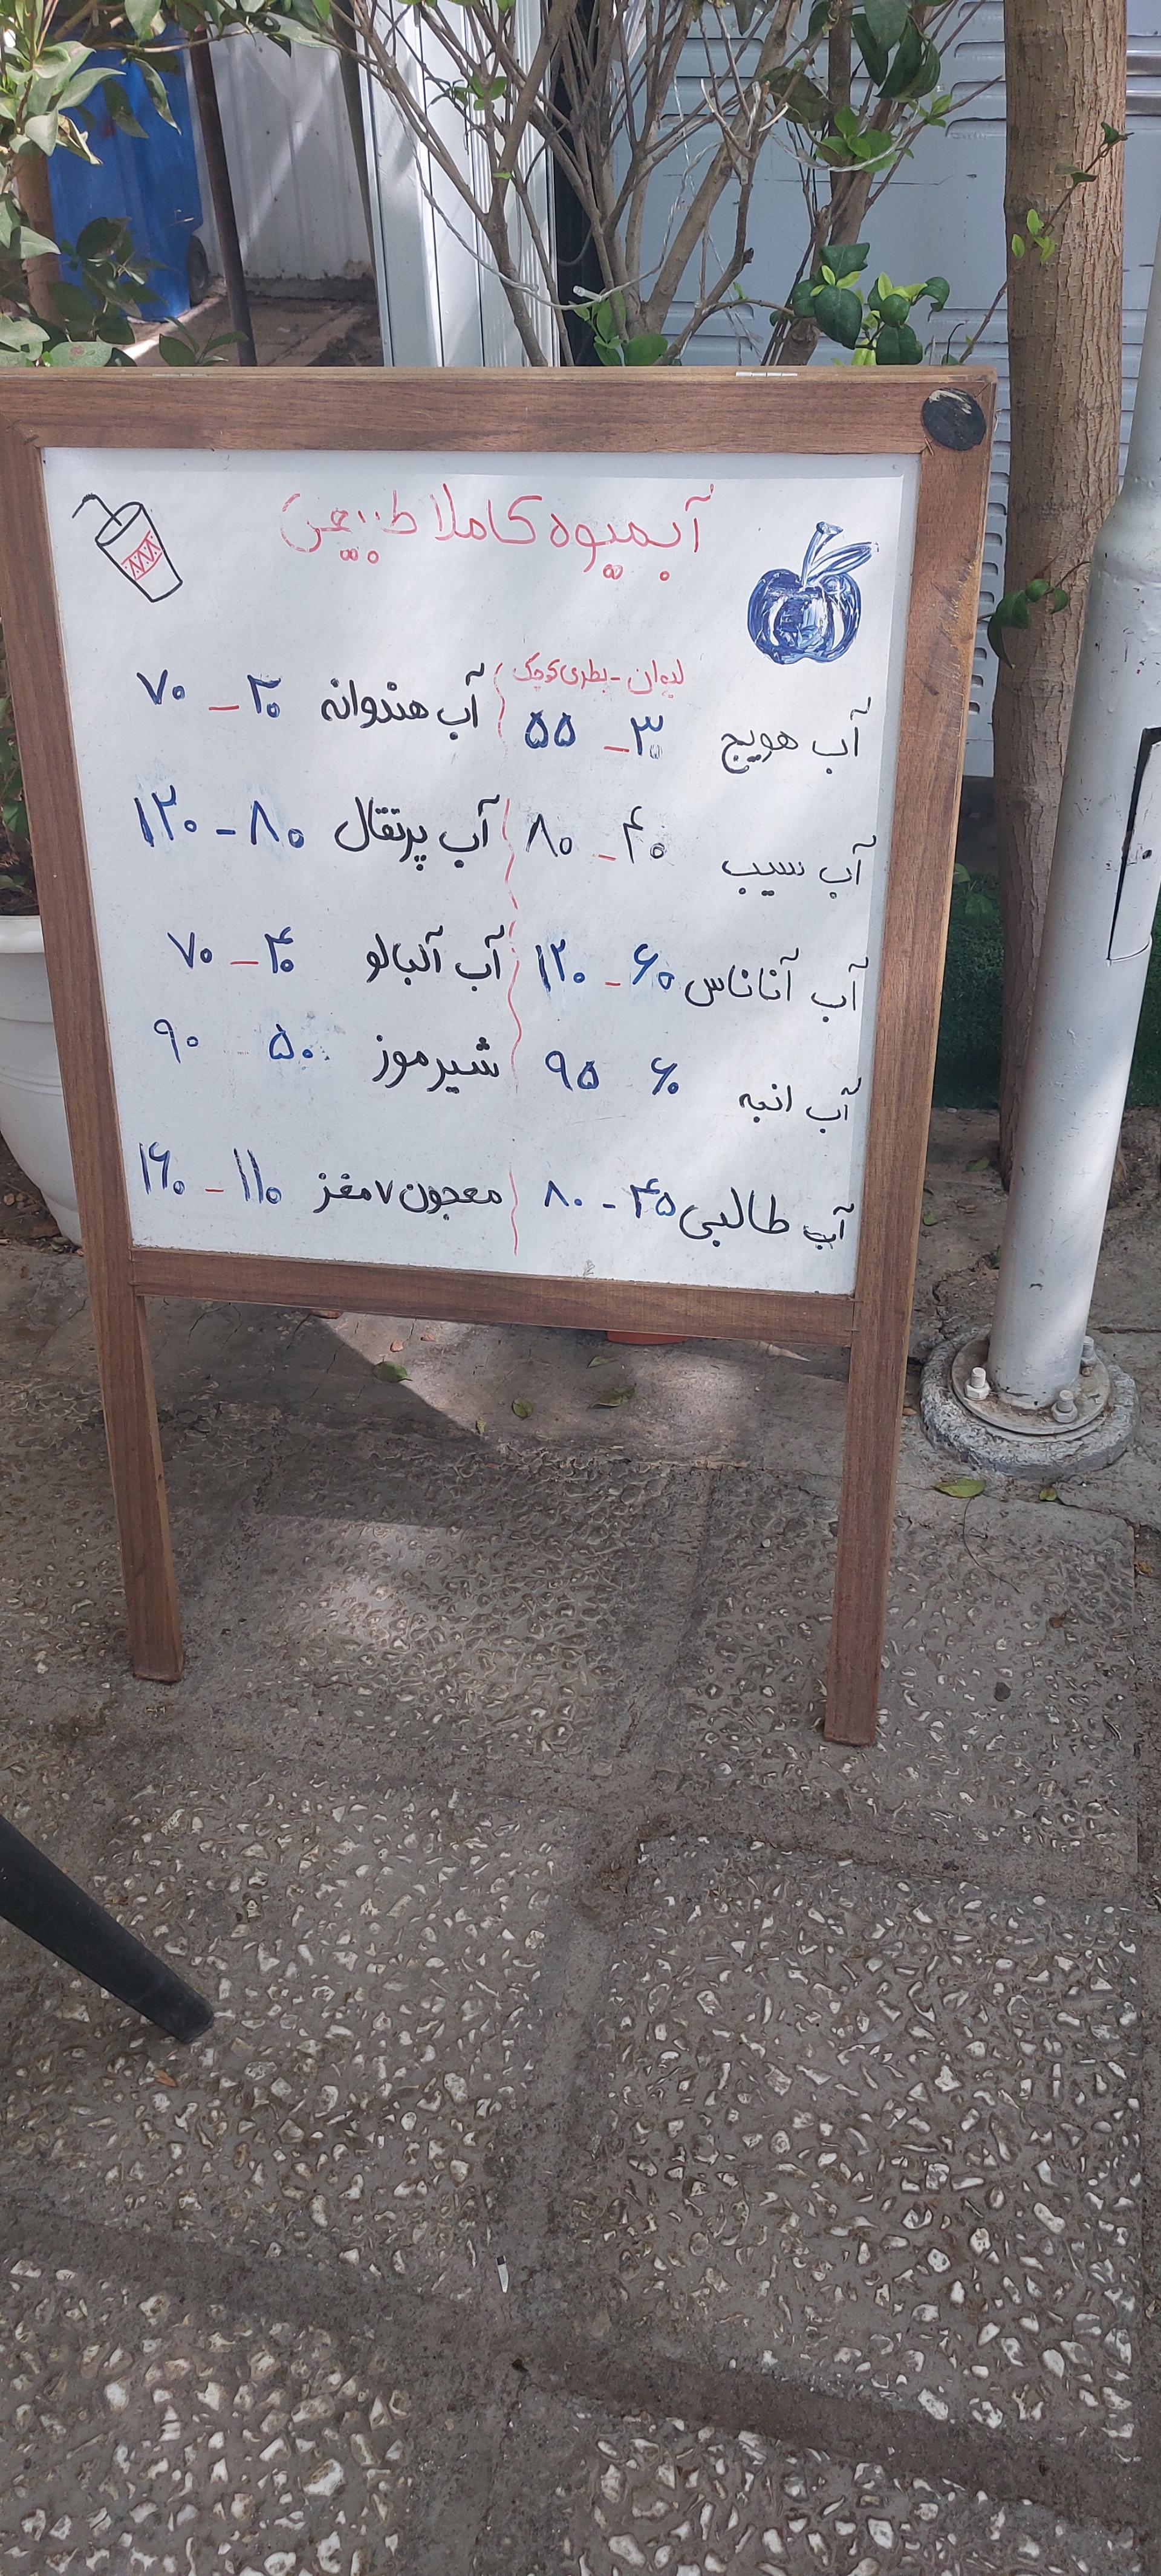 آبمیوه کاملا طبیعی
لیوان - بطری کوچک
آب هویج ۳۰ - ۵۵
آب سیب ۴۰ - ۸۰
آب آناناس ۶۰ - ۱۲۰
آب انبه ۶۰ ۹۵
آب طالبی ۴۵ - ۸۰
آب هندوانه ۳۰ - ۷۰
آب پرتقال ۸۰ - ۱۲۰
آب آلبالو ۴۰ - ۷۰
شیرموز ۵۰ - ۹۰
معجون ۷ مغز ۱۱۰ - ۱۶۰